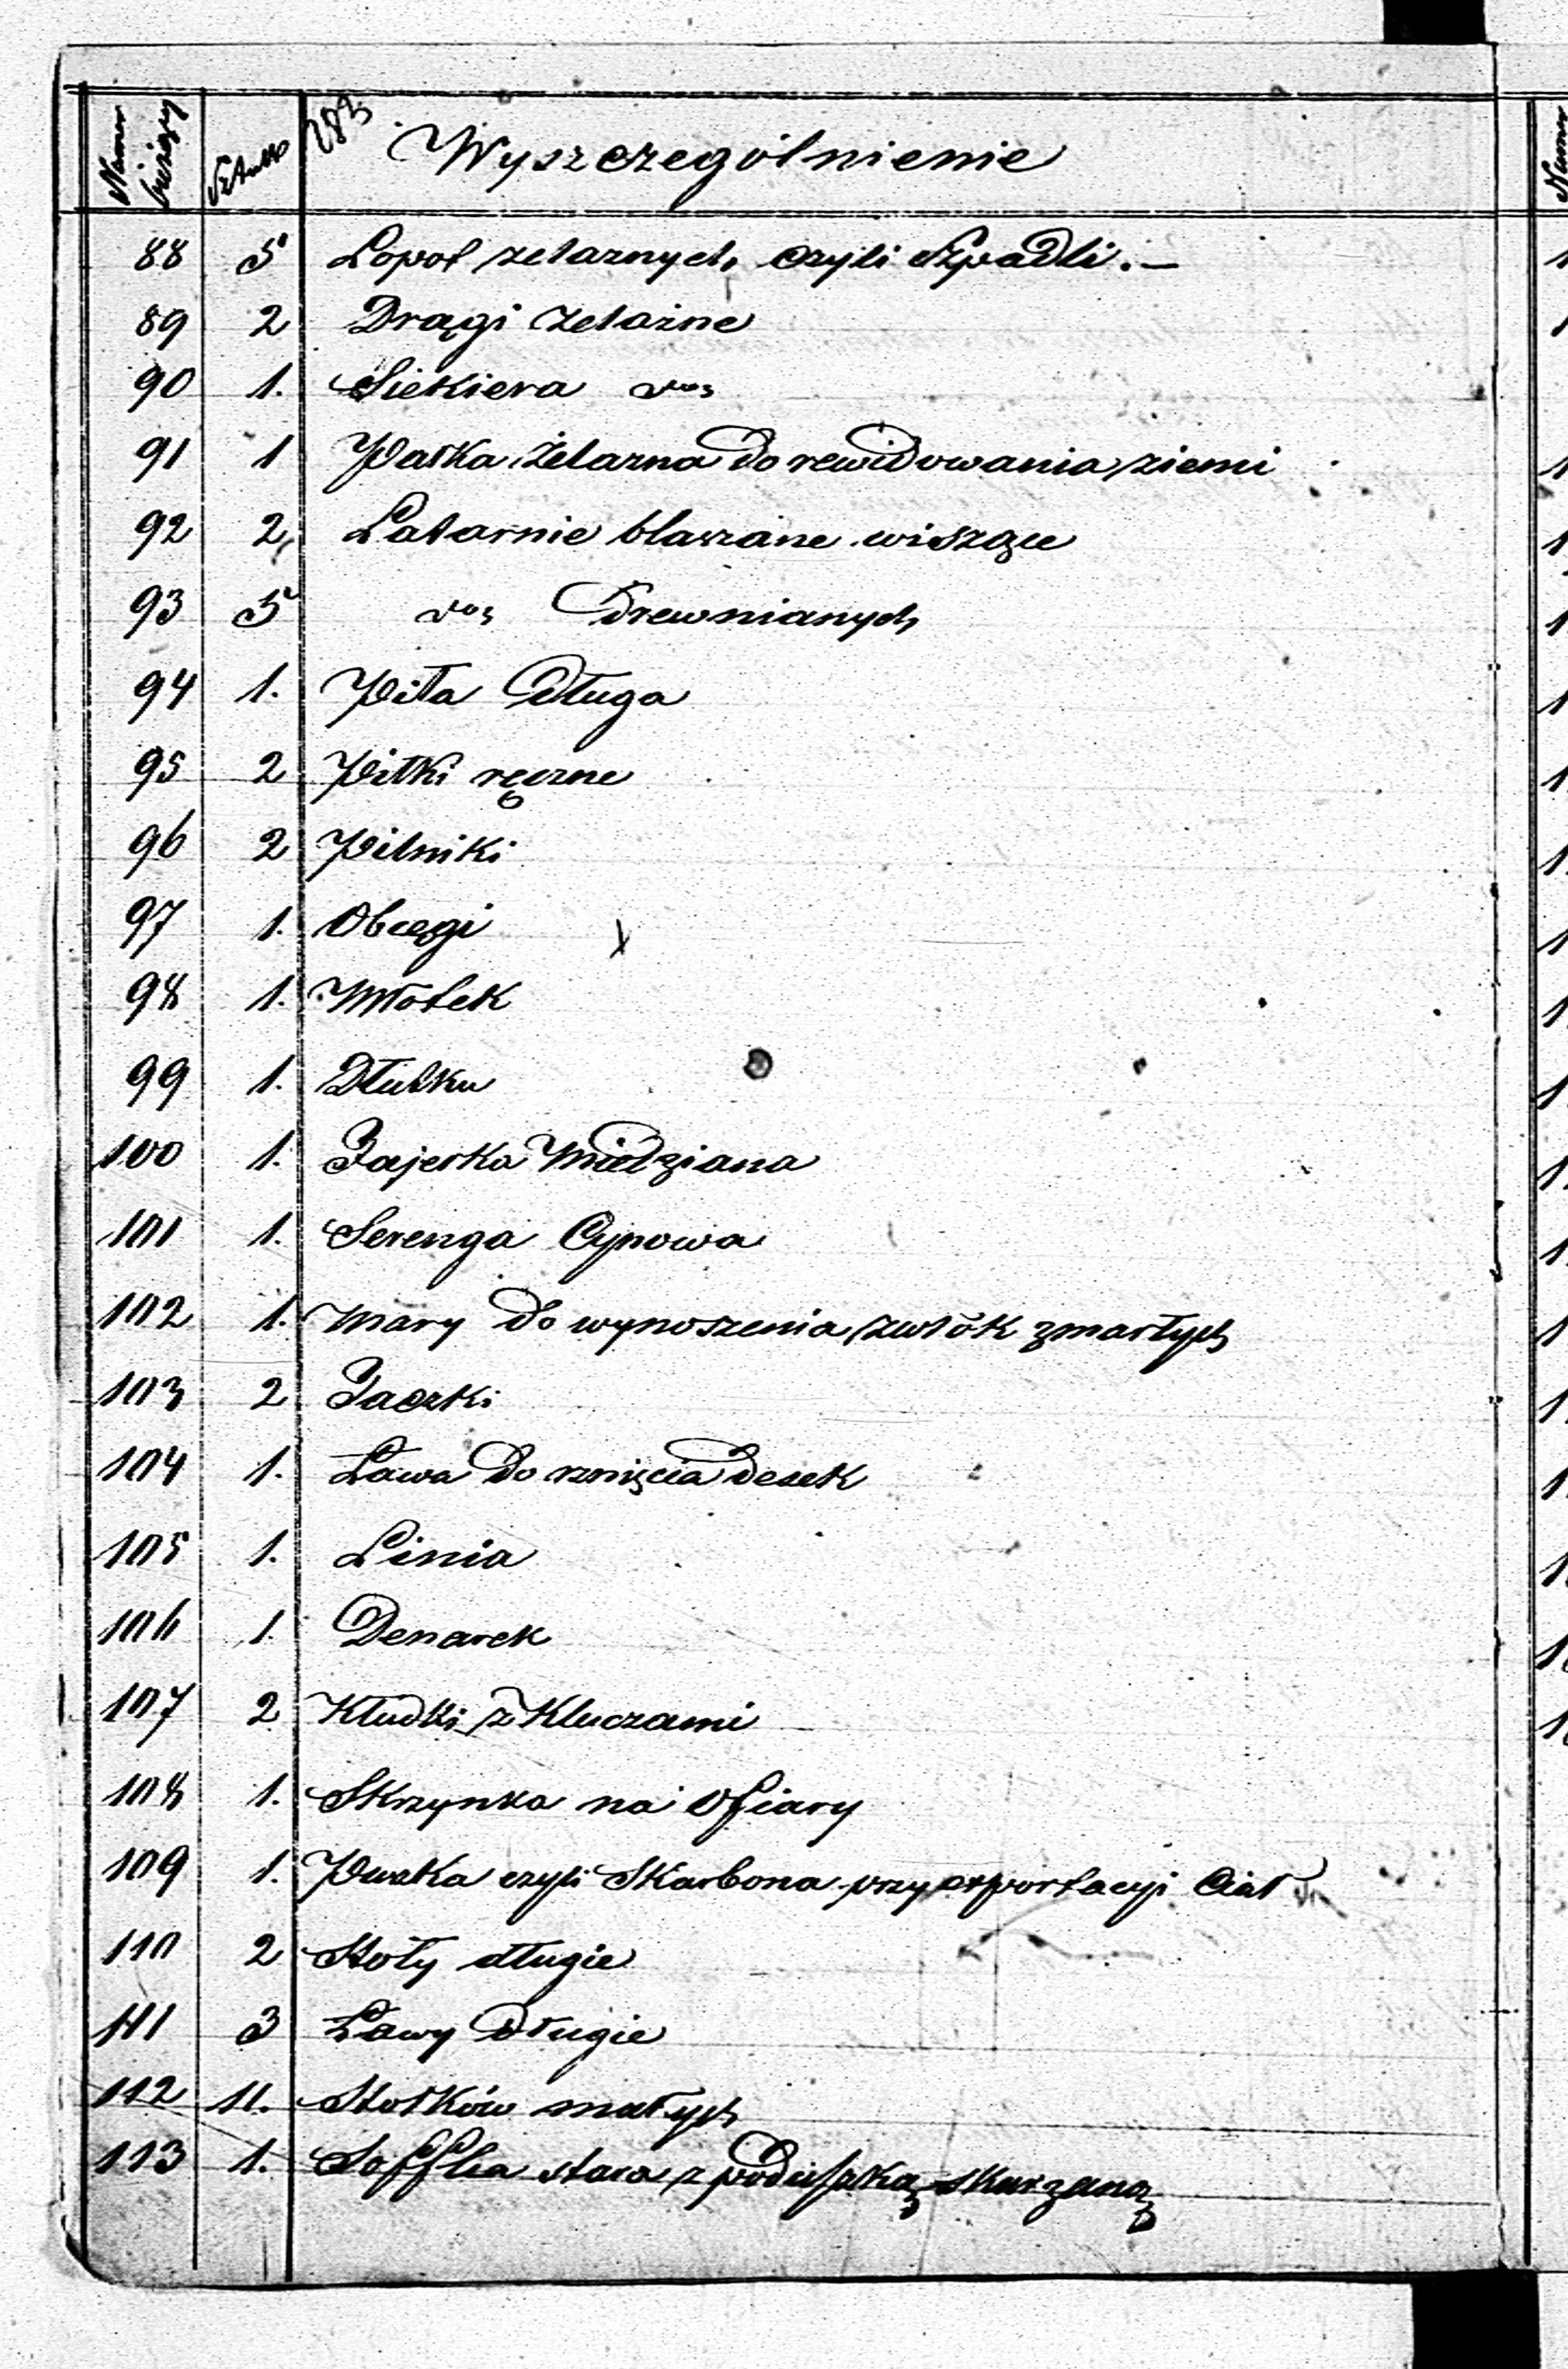 Numer bieżący Sztuk 283 Wyszczególnienie
88 5 Łopat żelaznych, czyli Szpadli. —
89 2 Drągi żelazne
90 1. Siekiera
91 1 Pałka żelazna do rewidowania ziemi
92 2 Latarnie blaszane wiszące
93 5 Drewnianych
94 1. Piła Długa
95 2 Piłki ręczne
96 2 Pilniki
97 1. Obcęgi
98 1. Młotek
99 1. Dłutko
100 1. Fajerka Miedziana
101 1. Serenga Cynowa
102 1. Mary do wynoszenia zwłok zmarłych
103 2 Taczki
104 1. Ława do rznięcia desek
105 1. Linia
106 1. Denarek
107 2 Kłudki z Kluczami
108 1. Skrzynka na Ofiary
109 1. Puszka czyli Skarbona przy exportacyi Ciał
110 2 Stoły długie
111 3 Ławy Długie
112 11. Stołków małych
113 1. Soffka stara z poduszką skurzaną